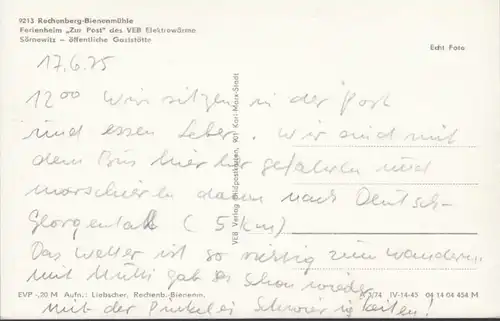 9213 Rechenberg-Bienenmühle
Ferienheim „Zur Post" des VEB Elektrowärme
Sörnewitz – öffentliche Gaststätte
Echt Foto
17.6.75
12 00 Wir sitzen in der Post
und essen Leber. Wir sind mit
dem Bus hier her gefahren und
marschieren dann nach Deutsch-
Georgental (5 km)
Das Wetter ist so richtig zum wandern.
mit Mutti gab es schon wieder
mit der Pinkelei Schwierigkeiten!
VEB Verlag Bildpostkarten, 901 Karl-Marx-Stadt
EVP -,20 M Aufn.: Liebscher, Rechenb.-Bienenm.
A 3/74 IV-14-45 04 14 04 454 M